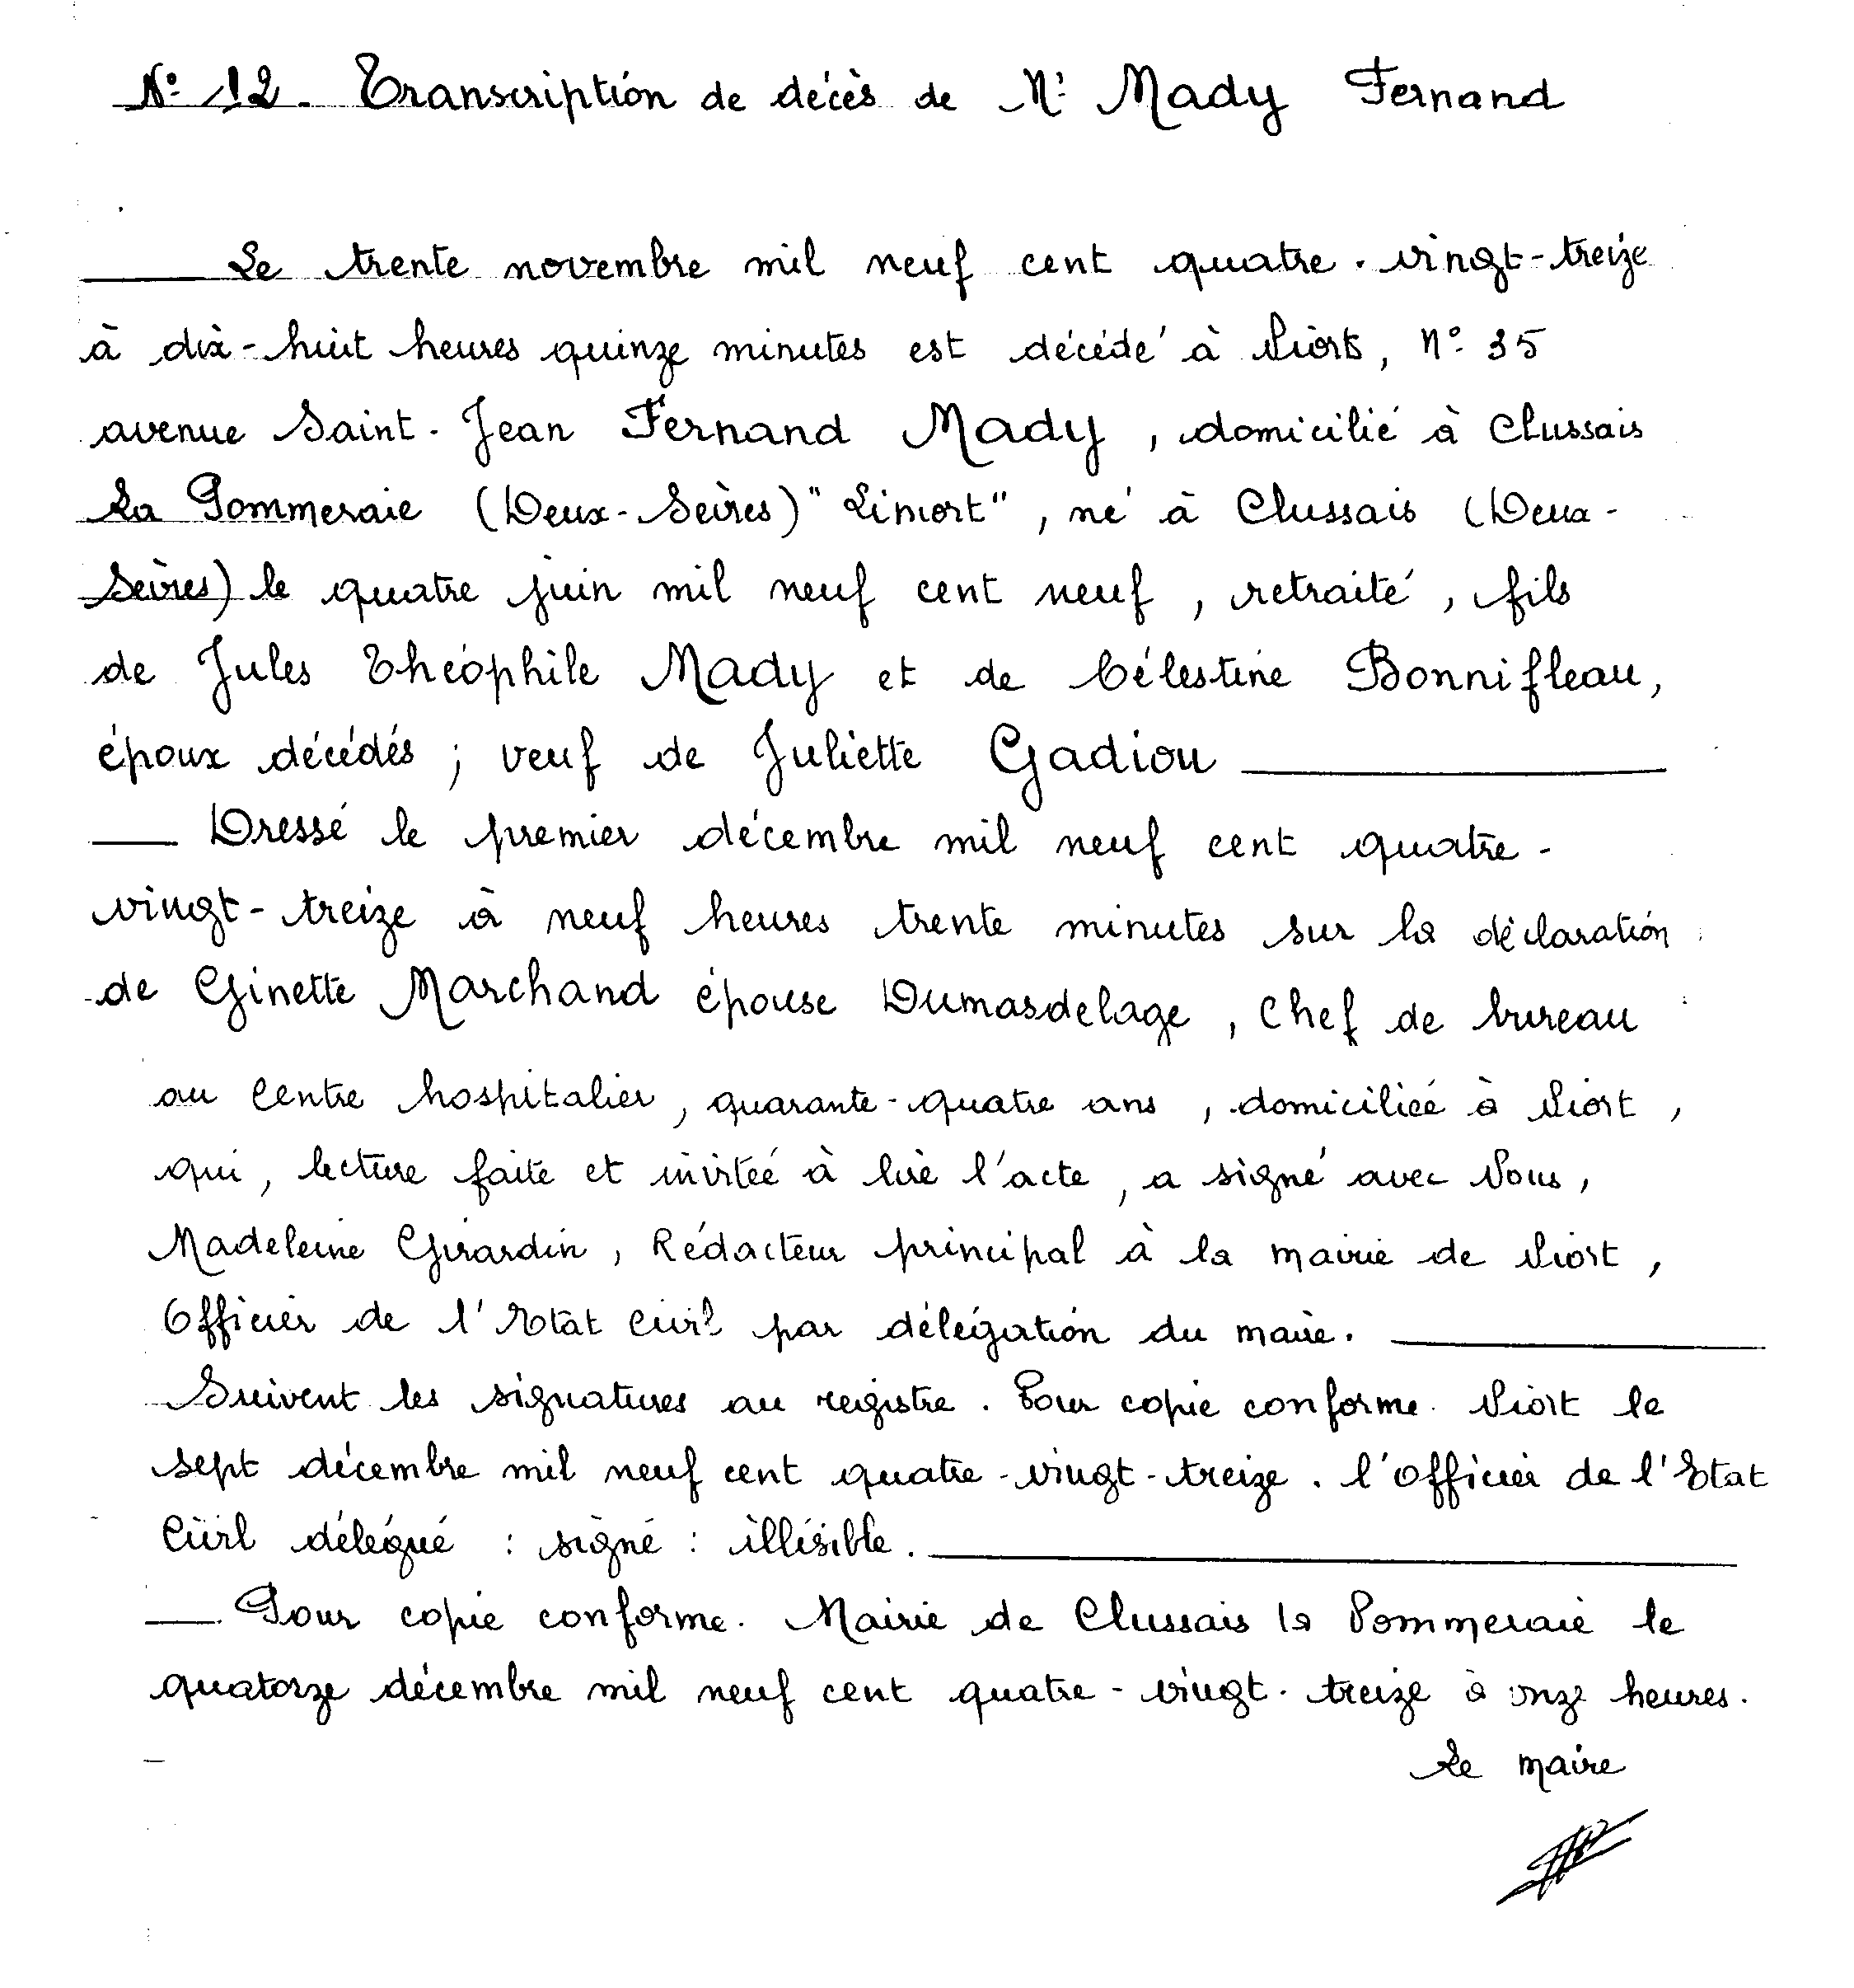 N° 12 - Transcription de décès de Mr Mady Fernand
Le trente novembre mil neuf cent quatre-vingt-treize
à dix-huit heures quinze minutes est décédé à Niort, N° 35
avenue Saint-Jean Fernand Mady, domicilié à Clussais
La Pommeraie (Deux-Sèvres) "Limort", né à Clussais (Deux-
Sèvres) le quatre juin mil neuf cent neuf, retraité, fils
de Jules Théophile Mady et de Célestine Bonnifleau,
époux décédés ; veuf de Juliette Gadiou
Dressé le premier décembre mil neuf cent quatre-
vingt-treize à neuf heures trente minutes sur la déclaration
de Ginette Marchand épouse Dumasdelage, Chef de bureau
au Centre hospitalier, quarante-quatre ans, domiciliée à Niort,
qui, lecture faite et invitée à lire l'acte, a signé avec Nous,
Madeleine Girardin, Rédacteur principal à la mairie de Niort,
Officier de l'Etat Civil par délégation du maire.
Suivent les signatures au registre. Pour copie conforme. Niort le
sept décembre mil neuf cent quatre-vingt-treize. l'Officier de l'Etat
Civil délégué : signé : illisible.
Pour copie conforme. Mairie de Clussais la Pommeraie le
quatorze décembre mil neuf cent quatre-vingt-treize à onze heures.
Le maire